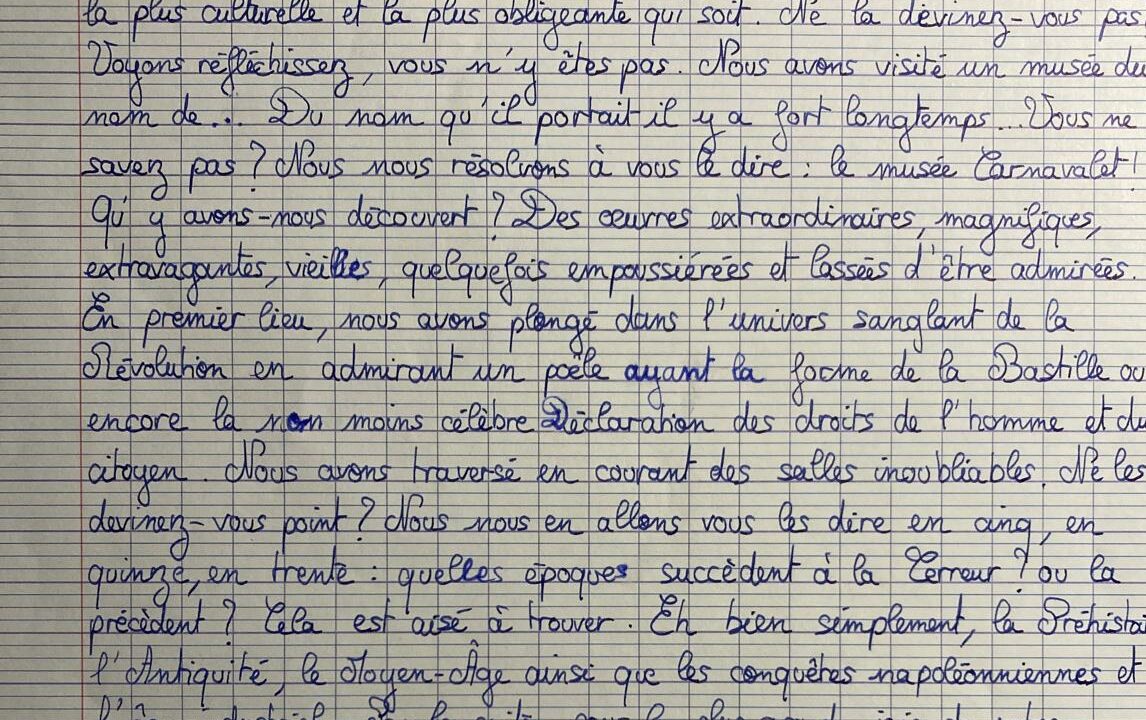 la plus culturelle et la plus obligeante qui soit. Ne la devinez-vous pas
Voyons réfléchissez, vous n'y êtes pas. Nous avons visité un musée du
nom de... Du nom qu'il portait il y a fort longtemps... Vous ne
savez pas ? Nous nous résolvons à vous le dire : le musée Carnavalet !
Qu'y avons-nous découvert ? Des œuvres extraordinaires, magnifiques,
extravagantes, vieilles, quelquefois empoussiérées et lassées d'être admirées.
En premier lieu, nous avons plongé dans l'univers sanglant de la
Révolution en admirant un poêle ayant la forme de la Bastille ou
encore la non moins célèbre Déclaration des droits de l'homme et du
citoyen. Nous avons traversé en courant des salles inoubliables. Ne les
devinez-vous point ? Nous nous en allons vous les dire en cinq, en
quinze, en trente : quelles époques succèdent à la Terreur ? ou la
précèdent ? Cela est aisé à trouver. Eh bien simplement, la Préhisto
l'Antiquité, le Moyen-Âge ainsi que les conquêtes napoléonniennes et